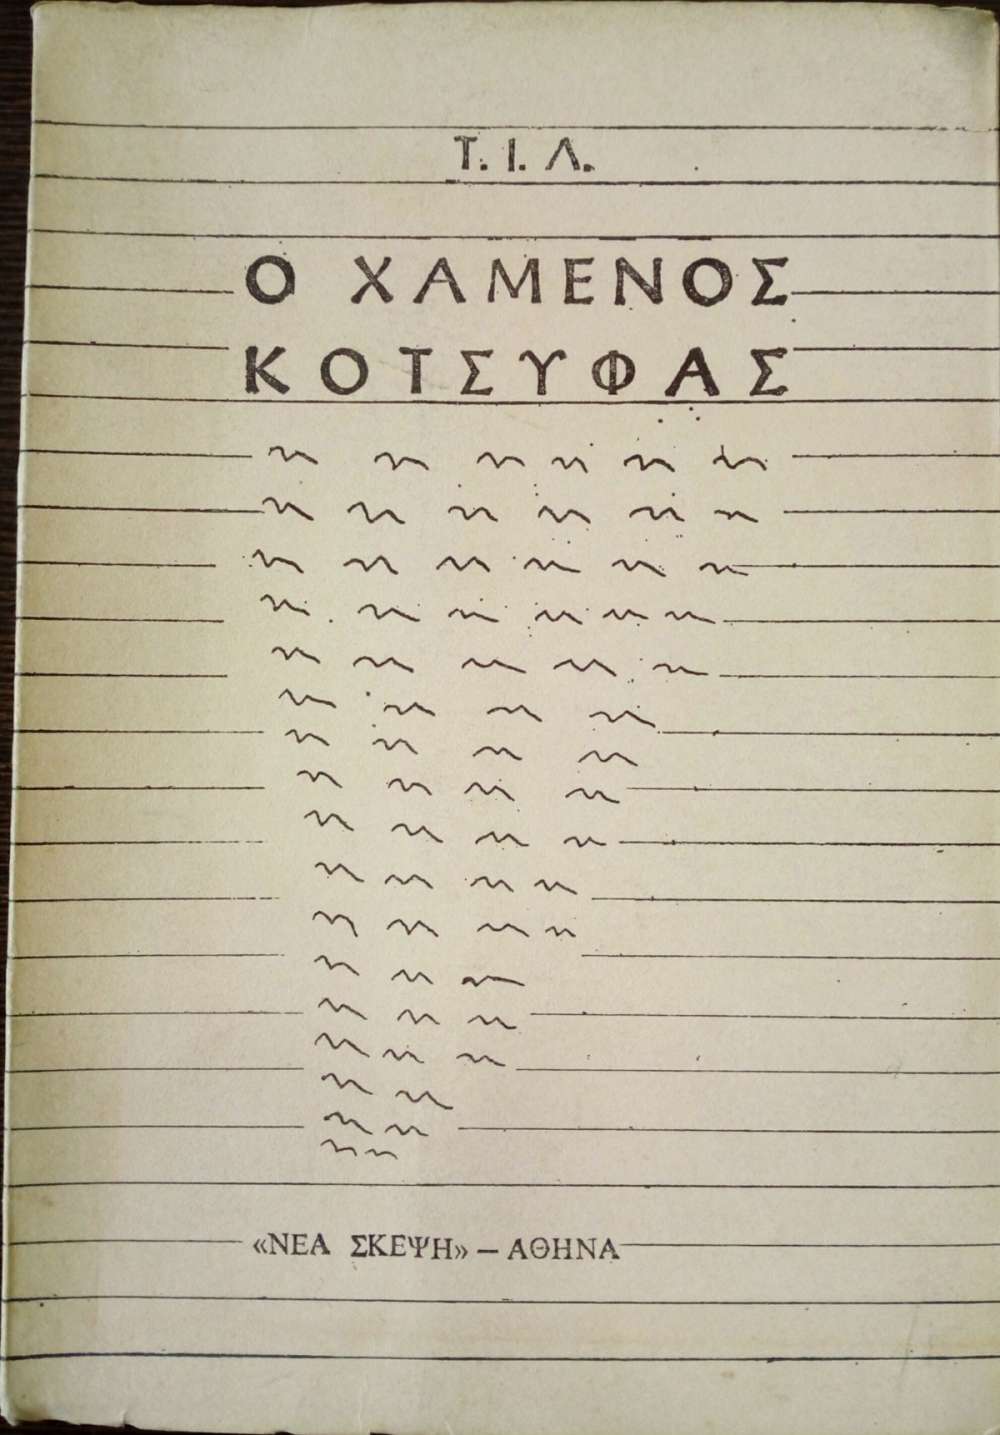 Τ. Ι. Λ.
Ο ΧΑΜΕΝΟΣ
ΚΟΤΣΥΦΑΣ
«ΝΕΑ ΣΚΕΨΗ» – ΑΘΗΝΑ